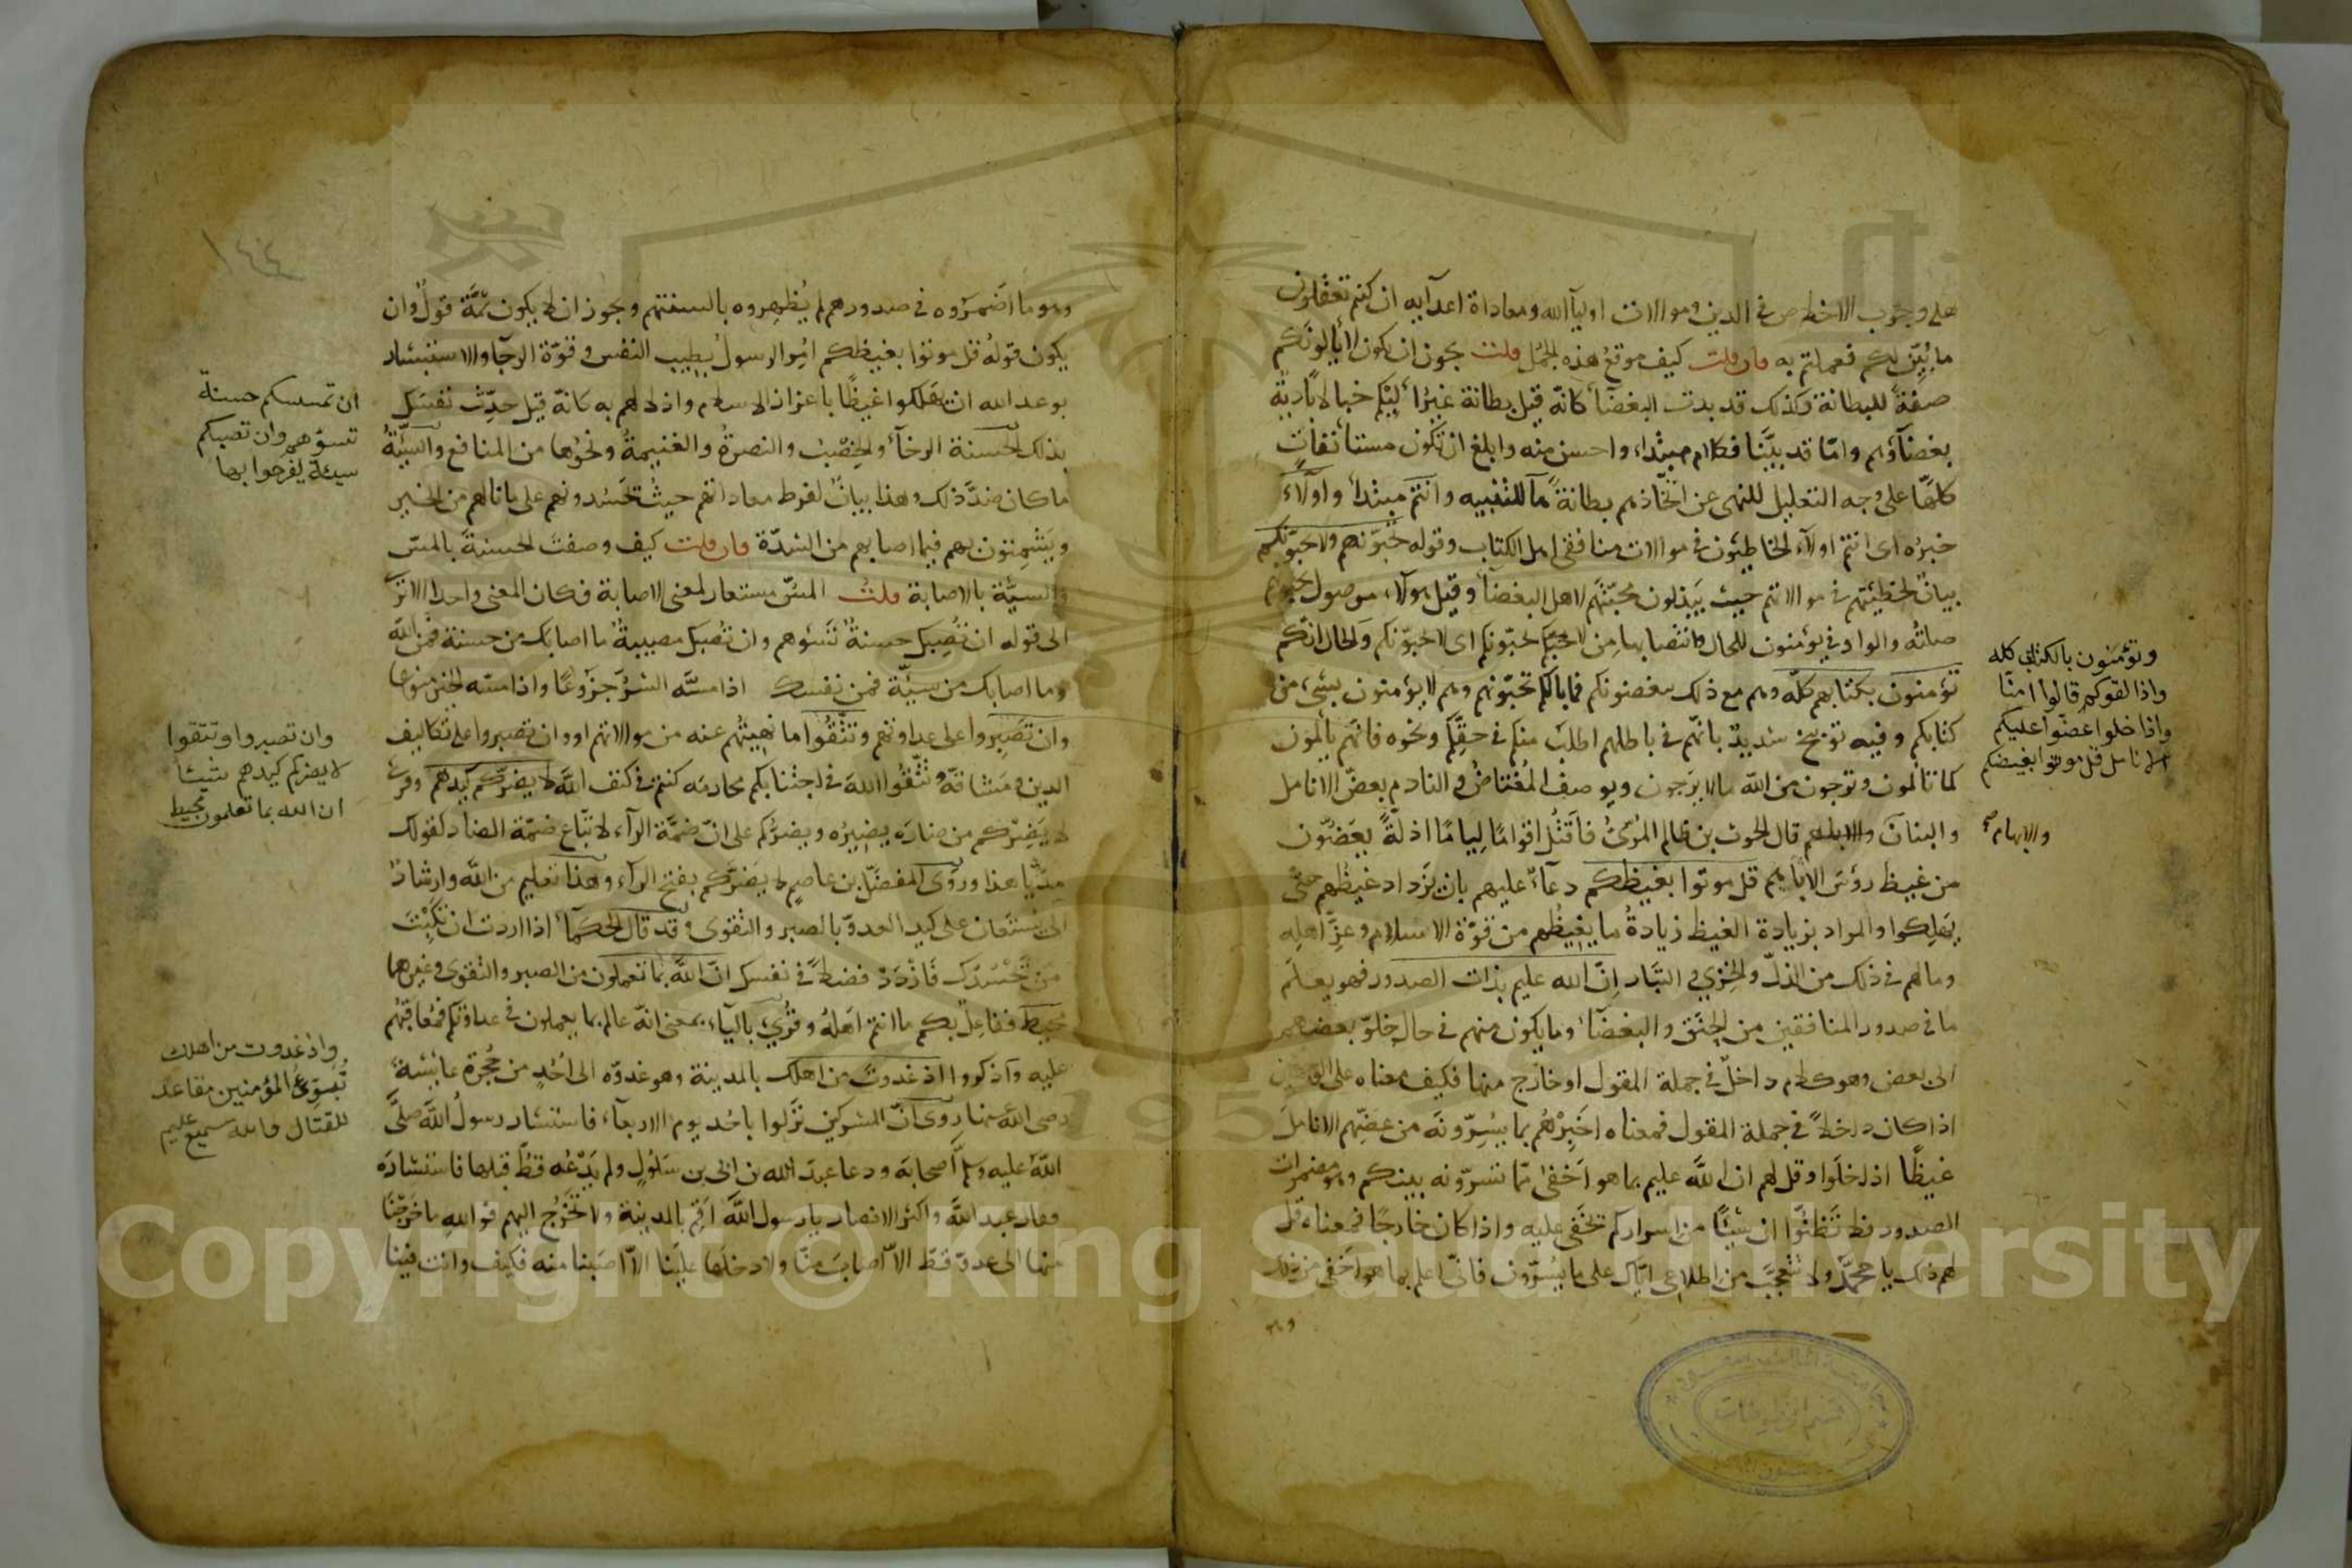 على وجوب الاخلاص في الدين وموالات اوليآ الله ومعاداة اعدآيه ان كنتم تعقلون
ما بُيّن لكم فعملتم به فان قلت كيف موقع هذه الجُمَل قلت يجوز ان يكون لا يألونكم
صفةً للبطانة وكذلك قد بدت البغضآء كانّه قيل بطانة غيرَ آليكم خبالا باديةً
بغضآؤهم وامّا قد بيّنّا فكلام مبتداء واحسن منه وابلغ ان تكون مستأنفاتٍ
كلّها على وجه التعليل للنهى عن اتّخاذهم بطانةً هآ للتنبيه وانتم مبتداء واولآء
خبرُه اى انتم اولآء الخاطئون في موالات منافقى اهل الكتاب وقوله تحبّونهم ولا يحبّونكم
بيان لخطيئتهم في موالاتهم حيث يبذلون محبّتهم لاهل البغضآء وقيل اولآء موصول تحبّونهم
صلتُه والواو في وتؤمنون للحال وانتصابها من لا يحبّونكم اى لا يحبّونكم والحال انّكم
تؤمنون بكتابهم كلّه وهم مع ذلك يبغضونكم فما بالكم تحبّونهم وهم لا يؤمنون بشىء من
كتابكم وفيه توبيخ شديد بانّهم في باطلهم اصلب منكم في حقّكم ونحوه فانّهم يألمون
كما تألمون وترجون من الله ما لا يرجون ويوصف المُغتاظ والنادم بعضّ الانامل
والبنان والابهام قال الحرث بن ظالم المُرّىّ فاَقتُلُ اقوامًا لِيامًا اذلّةً يعَضّون
من غيظ رؤس الاباهم قل موتوا بغيظكم دعآء عليهم بان يزداد غيظهم حتّى
يهلِكوا والمراد بزيادة الغيظ زيادةُ ما يغيظُهم من قوّة الاسلام وعزّ اهلِه
وما لهم في ذلك من الذلّ والخِزي والتبار اِنّ الله عليم بذات الصدور فهو يعلم
ما في صدور المنافقين من الحَنَق والبغضآء وما يكون منهم في حال خلوّ بعضهم
الى بعض وهو كلام داخل في جملة المقول او خارج منها فكيف معناه على الوجهين
اذا كان داخلاً في جملة المقول فمعناه اَخبِرْهُم بما يُسِرّونَه من عضّهم الاناملَ
غيظًا اذا خلَوا وقل لهم ان الله عليم بما هو اَخفى ممّا تسرّونه بينكم وهو مضمرات
الصدور فلا تظنّوا ان شيئًا من اسراركم تخفَى عليه واذا كان خارجًا فمعناه قل
لهم ذلك يا محمّد ولا تتعجّبْ من اطلاعى ايّاك على ما يُسرّون فانّى اعلم بما هو اَخفى من ذلك
وتؤمنون بالكتاب كله
واذا لقوكم قالوا امنّا
واذا خلوا عضّوا عليكم
الانامل قل موتوا بغيضكم
والابهام
وهو ما اَضمَرُوه في صدورهم لم يُظهِروه بالسنتهم ويجوز ان لا يكون ثمّة قولٌ وان
يكون قولهُ قل موتوا بغيظكم امرا لرسول بطيب النفس وقوّة الرجآ والاستبشار
بوعد الله ان يهلكوا غيظًا باعزاز الاسلام واذلالهم به كانّه قيل حدِّث نفسَك
بذلك الحسنة الرخآء والخِصب والنصرةُ والغنيمةُ ونحوُها من المنافع والسيّئةُ
ما كان ضدّ ذلك وهذا بيان لفرط معاداتهم حيثُ يحسُدونهم على ما نالهم من الخير
ويَشمتون بهم فيما اصابهم من الشدّة فان قلت كيف وصفتَ الحسنةَ بالمسّ
والسيّئة بالاصابة قلتُ المسّ مستعار لمعنى الاصابة فكان المعنى واحدا الا ترى
الى قوله ان تُصِبك حسنةٌ تَسُؤهم وان تُصِبك مصيبةٌ ما اصابك من حسنة فمن اللّه
وما اصابك من سيّئة فمن نفسك اذا مسّه الشرّ جزوعًا واذا مسّه الخير منوعًا
وان تَصبِروا على عداوتهم وتتّقوا ما نهيتُهم عنه من موالاتهم او وان تصبروا على تكاليف
الدين ومَشاقّه وتتّقوا اللّهَ في اجتنابكم محارمَه كنتم في كنف اللّه لا يضرّكم كيدُهم وقرئ
لا يَضِرْكم من ضارَه يضِيرُه ويضرُّكم على انّ ضمّة الرآء لاتّباع ضمّة الضاد كقولك
مدُّ يا هذا وروَى المفضّل بن عاصم لا يضرَّكم بفتح الرآء وهذا تعليم من اللّه وارشادٌ
الى ان يُستعان على كيد العدوّ بالصبر والتقوى وقد قال الحكمآء اذا اردتَ ان تكبِتَ
مَن تَحْسُدك فَازْدَدْ فضلاً في نفسك انّ اللّهَ بما تعملون من الصبر والتقوى وغيرهما
محيط ففاعِل بكم ما انتم اَهلهُ وقُرِئ بالياء بمعنى انّه عالم بما يعملون في عداوتكم فمُعاقبُهم
عليه وآذكروا اذ غدوتَ من اهلك بالمدينة وهو غدوّه الى اُحُدٍ من حُجرة عايشةَ
رضى اللّه عنها روى انّ المشركين نزَلوا باُحُد يوم الاربعآء فاستشار رسولُ اللّه صلّى
اللّهُ عليه وسلم اَصحابَه ودعا عبدَ اللّه بن ابىّ بن سَلُول ولم يَدْعُه قطّ قبلها فاستشارَه
فقال عبد اللّه واكثر الانصار يا رسول اللّه اَقِم بالمدينة ولا تَخرُج اليهم فو اللّهِ ما خرَجْنا
منها الى عدوّ قطّ الّا اَصابَ منّا ولا دخلَها علَينا الّا اَصَبنا منه فكيف وانت فينا
١٤٤
ان تمسسكم حسنة
تسؤهم وان تصبكم
سيئة يفرحوا بها
وان تصبروا وتتقوا
لا يضركم كيدهم شيئا
ان الله بما تعملون محيط
واذ غدوت من اهلك
تبوّئ المؤمنين مقاعد
للقتال والله سميع عليم
Copyright © King Saud University